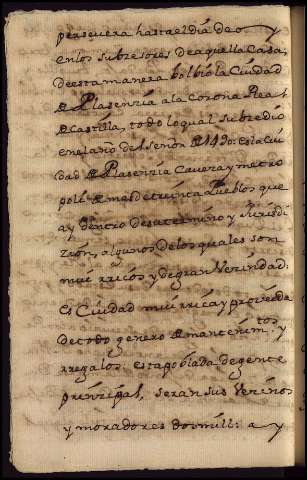 persevera hasta el día de oy
en los subzesores de aquella Casa,
de esta manera bolbio la Ciudad
de Plasenzia a la Corona Real
de Castilla, todo lo qual subzedio
en el año del Señor de 1490: es la Ciu
dad de Plasenzia Cavezay metro
poli de mas de treinta Pueblos que
ay dentro de su termino y Jurisdi
zion, algunos de los quales son
mui rricos y de gran Vezindad:
es Ciudad mui rrica y proveida
de todo genero de mantenim.tos
y rregalos, esta poblada de gente
prinzipal, seran sus Vezinos
y moradores dos mill: a y